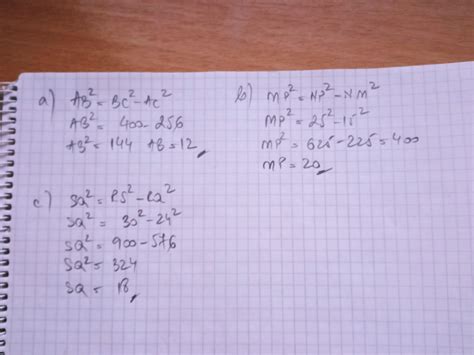 a) AB² = BC² - AC²
AB² = 400 - 256
AB² = 144 AB = 12
b) MP² = NP² - NM²
MP² = 25² - 15²
MP² = 625 - 225 = 400
MP = 20
c) SQ² = RS² - RQ²
SQ² = 30² - 24²
SQ² = 900 - 576
SQ² = 324
SQ = 18